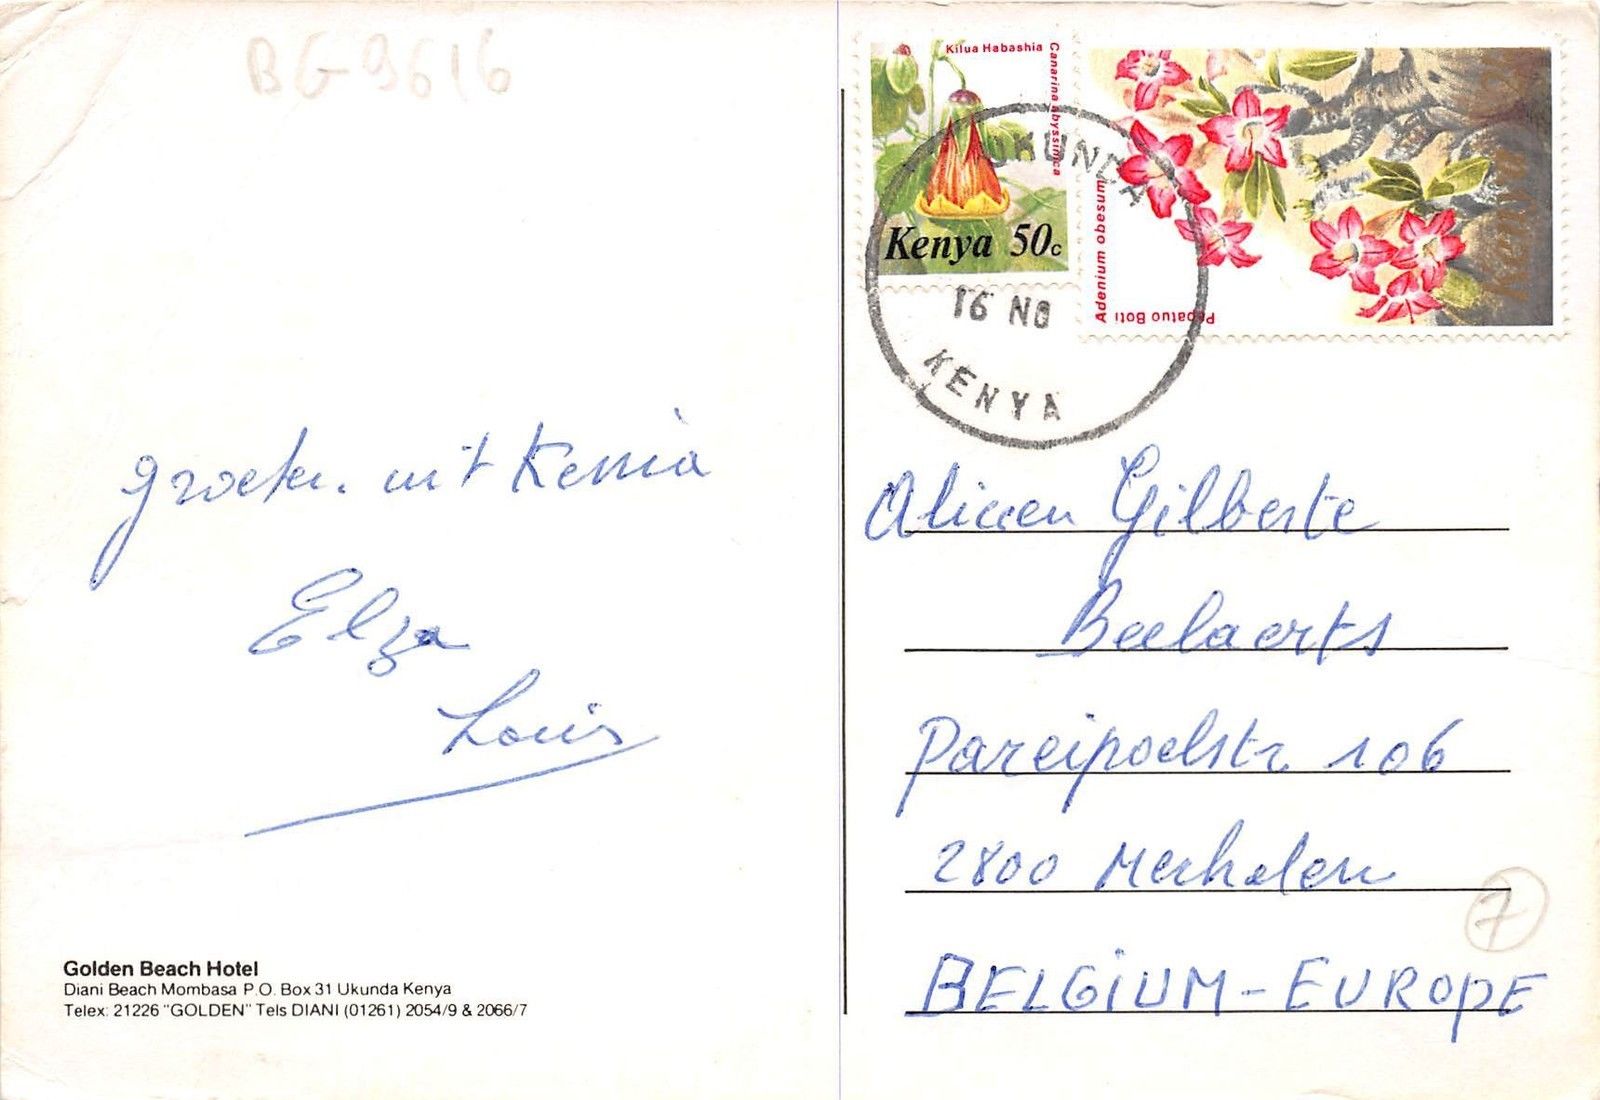 BG-9616
groeten uit Kenia
Elza
Louis
Golden Beach Hotel
Diani Beach Mombasa P.O. Box 31 Ukunda Kenya
Telex: 21226 "GOLDEN" Tels DIANI (01261) 2054/9 & 2066/7
Kilua Habashia
Canarina abyssinica
Kenya 50c
Adenium obesum
Papatuo Boti
Kenya
UKUNDA
16 NO
KENYA
Gilberte
Beelaerts
106
2800 Mechelen
BELGIUM-EUROPE
7